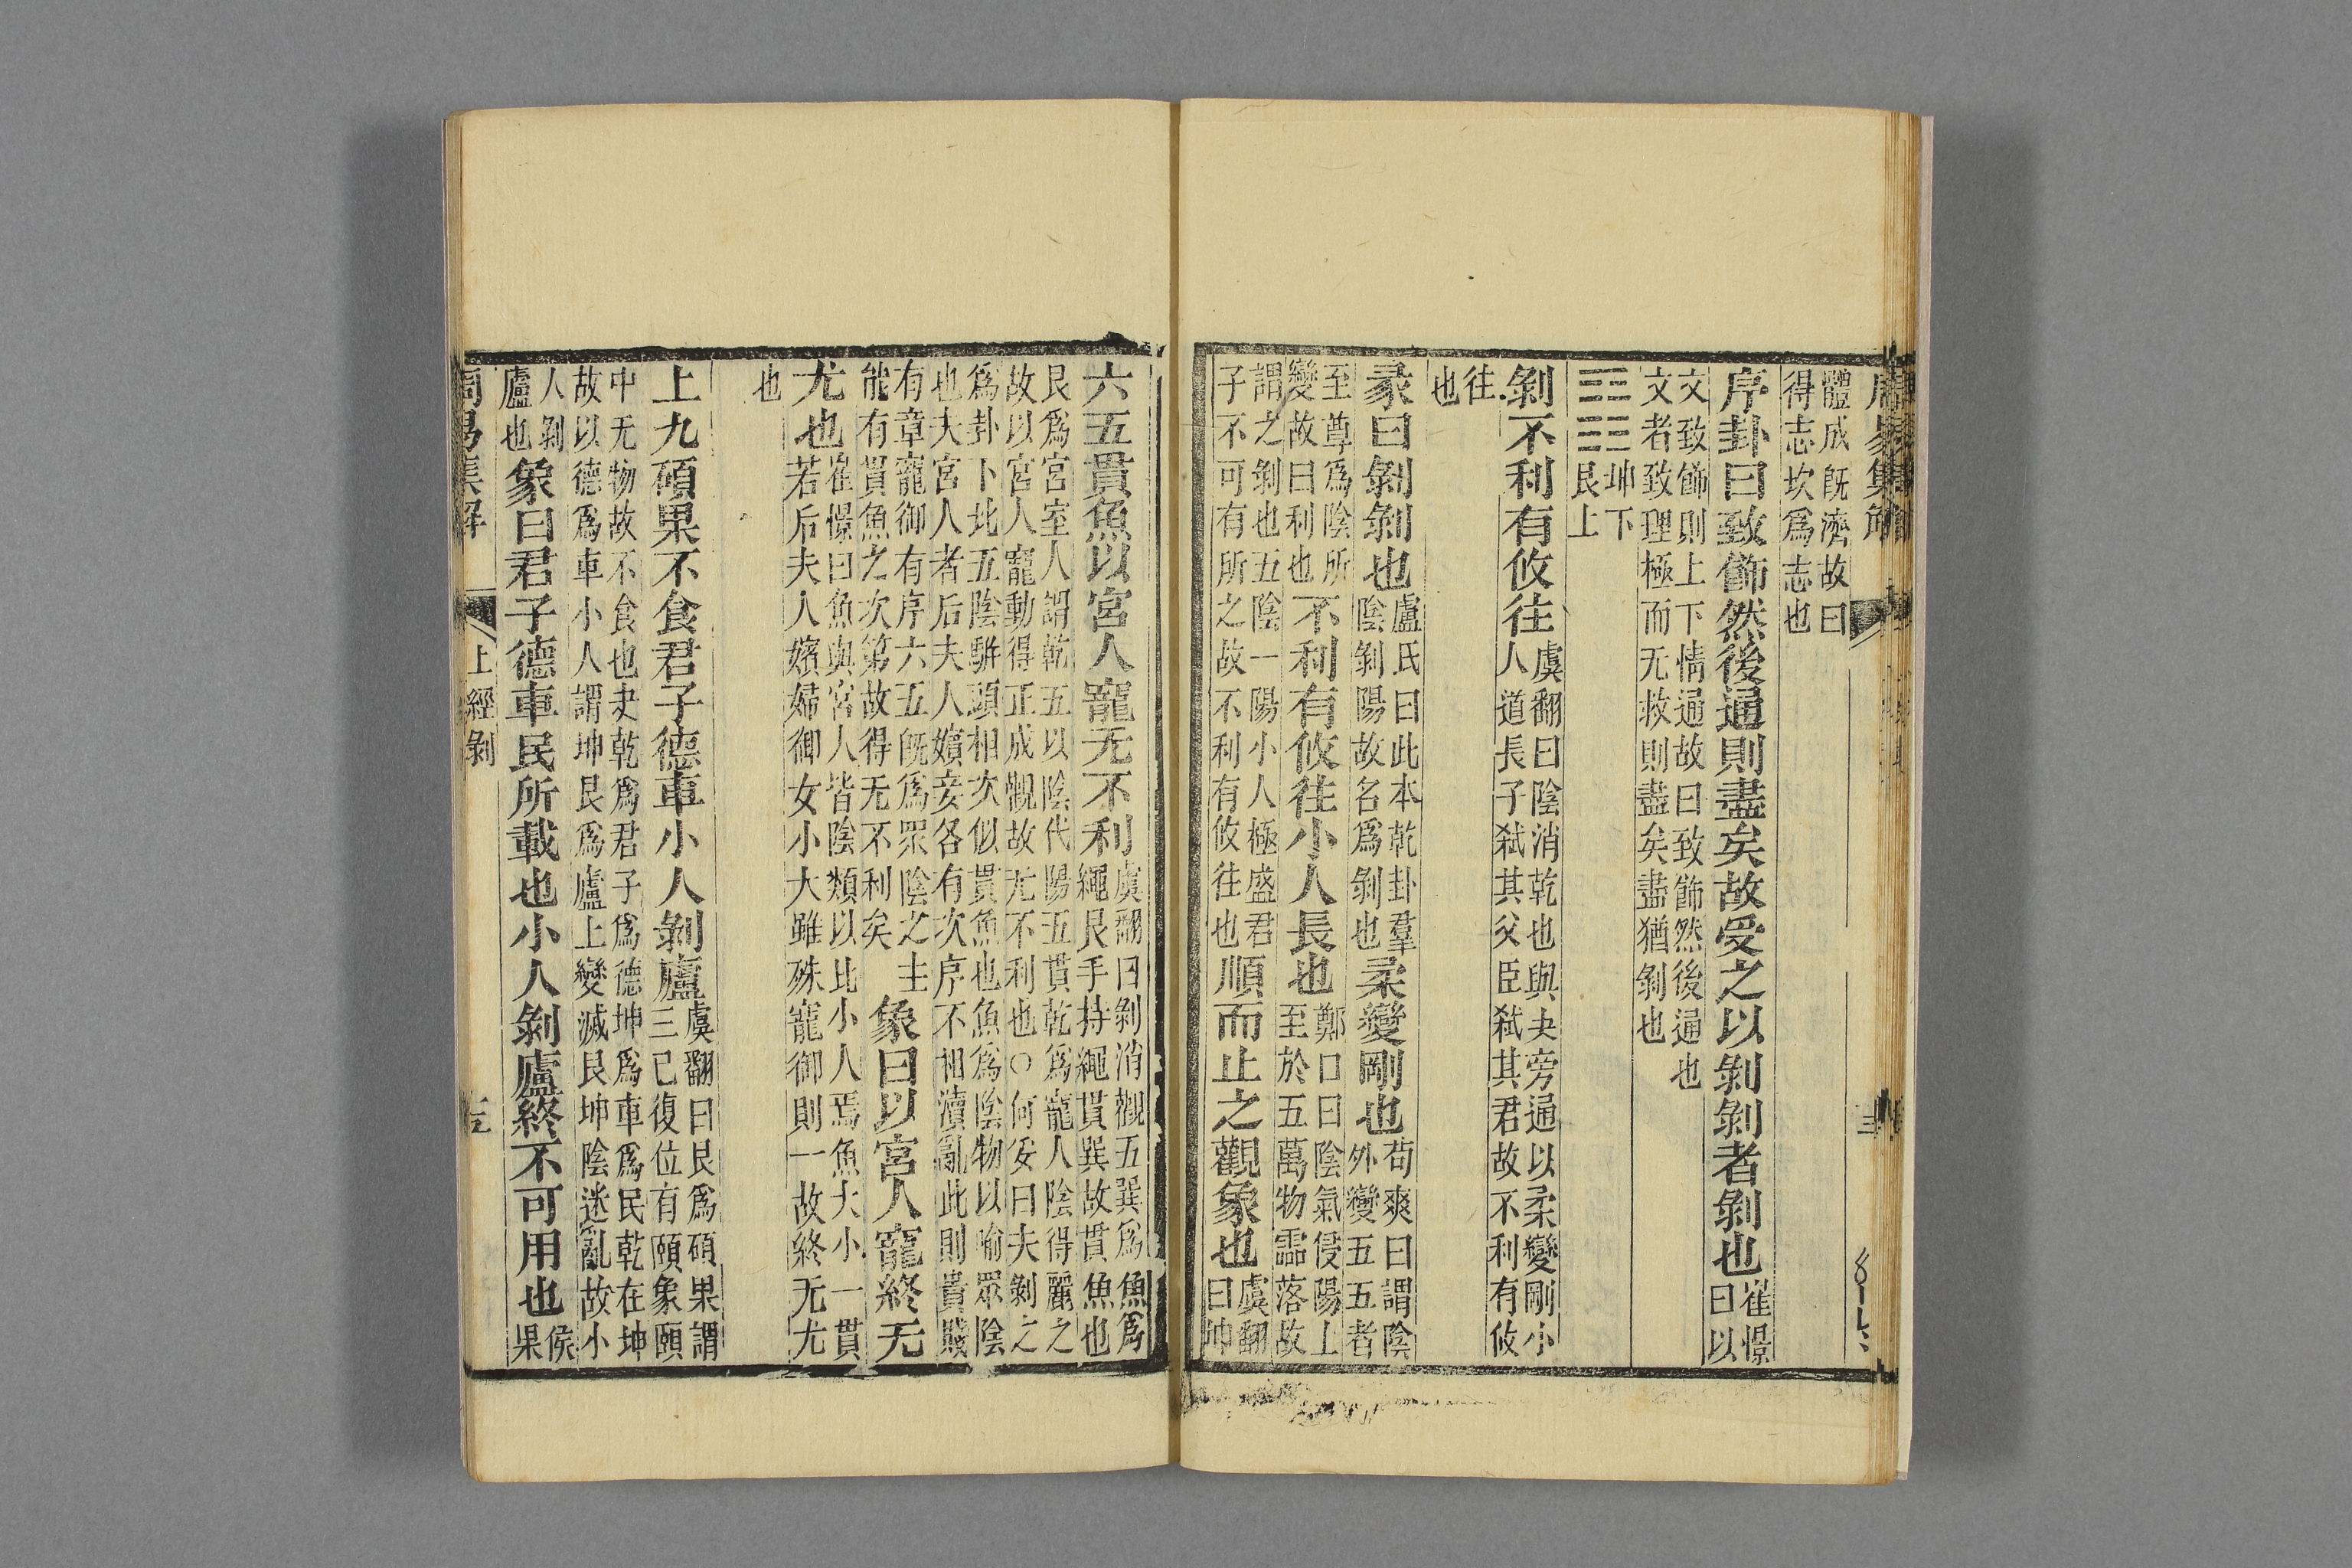 周易集解
體成旣濟故曰
得志坎爲志也
序卦曰致飾然後通則盡矣故受之以剝剝者剝也崔憬
曰以
文致飾則上下情通故曰致飾然後通也
文者致理極而无救則盡矣盡猶剝也
坤下
艮上
剝不利有攸往虞翻曰陰消乾也與夬旁通以柔變剛小
人道長子弑其父臣弑其君故不利有攸
往
也
彖曰剝剝也盧氏曰此本乾卦羣
陰剝陽故名爲剝也柔變剛也荀爽曰謂陰
外變五五者
至尊爲陰所
變故曰利也不利有攸往小人長也鄭口曰陰氣侵陽上
至於五萬物霝落故
謂之剝也五陰一陽小人極盛君
子不可有所之故不利有攸往也順而止之觀象也虞翻
曰帥
六五貫魚以宮人寵无不利虞翻曰剝消觀五巽爲魚爲
繩艮手持繩貫巽故貫魚也
艮爲宮室人謂乾五以陰代陽五貫乾爲寵人陰得麗之
故以宮人寵動得正成觀故无不利也○何妥曰夫剝之
爲卦下比五陰駢頭相次似貫魚也魚爲陰物以喻眾陰
也夫宮人者后夫人嬪妾各有次序不相瀆亂此則貴賤
有章寵御有序六五旣爲眾陰之主
能有貫魚之次第故得无不利矣象曰以宮人寵終无
尤也崔憬曰魚與宮人皆陰類以比小人焉魚大小一貫
若后夫人嬪婦御女小大雖殊寵御則一故終无尤
也
上九碩果不食君子德車小人剝廬虞翻曰艮爲碩果謂
三已復位有頤象頤
中无物故不食也夬乾爲君子爲德坤爲車爲民乾在坤
故以德爲車小人謂坤艮爲廬上變滅艮坤陰迷亂故小
人剝
廬也象曰君子德車民所載也小人剝廬終不可用也侯
果
周易集解 上經 剝